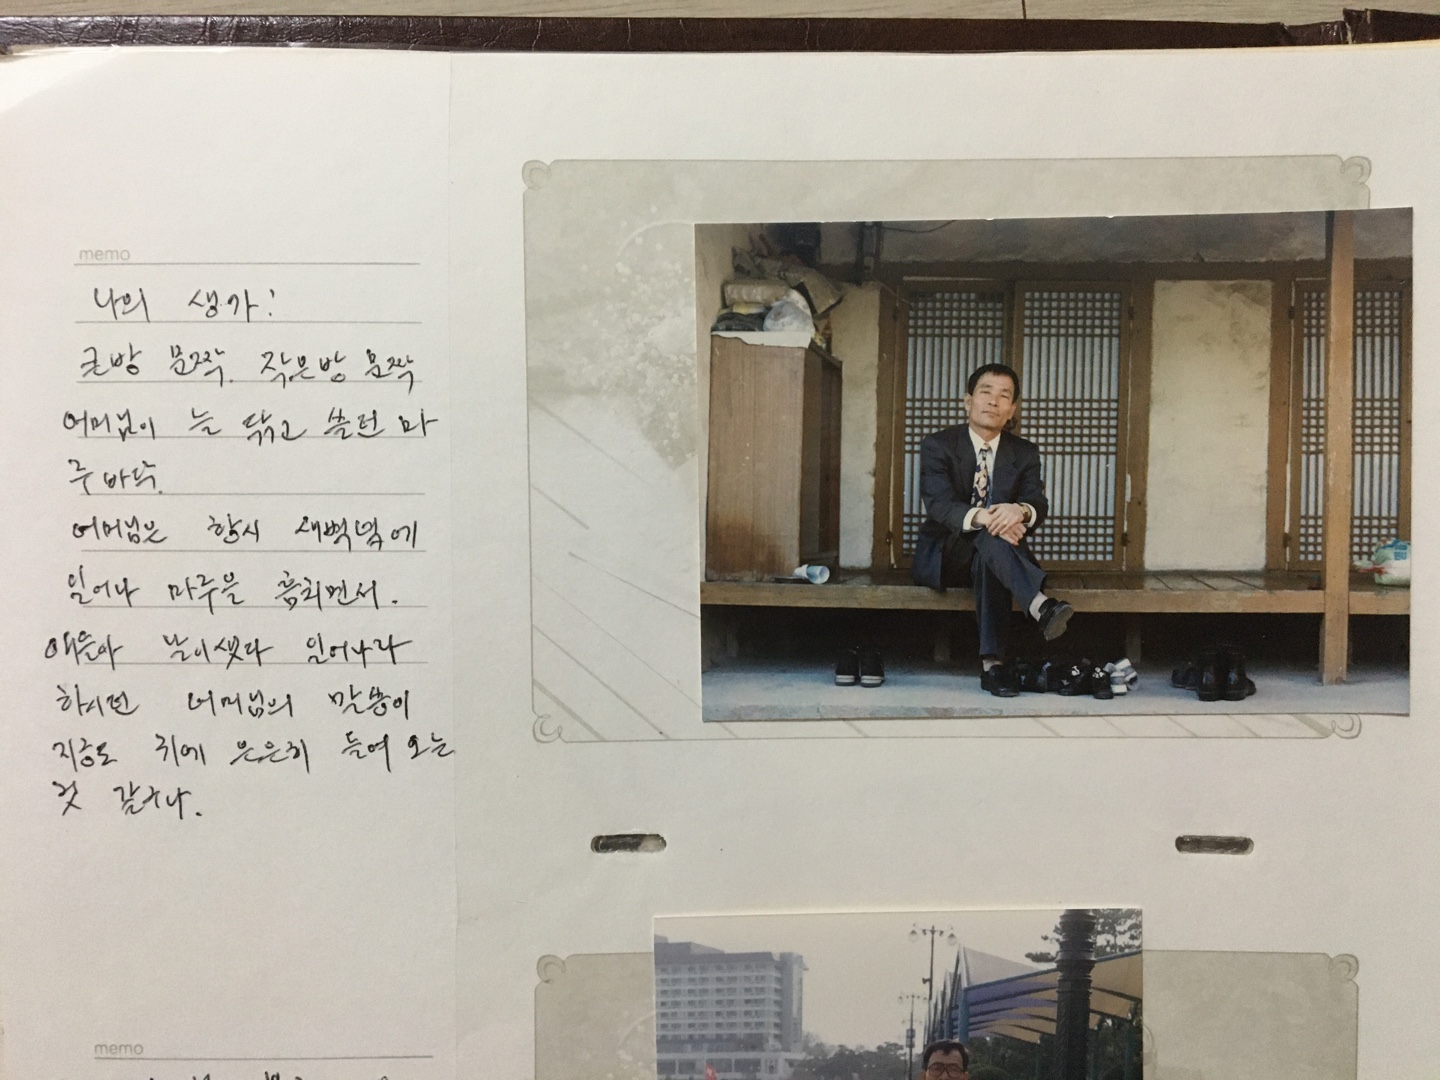 memo
나의 생가!
큰방 문짝. 작은방 문짝
어머님이 늘 닦고 쓸던 마
루 바닥.
어머님은 항시 새벽녘에
일어나 마루을 훔치면서.
애들아 날이샛다 일어나라
하시던 어머님의 말씀이
지금도 귀에 은은히 들여 오는
것 같구나.
memo